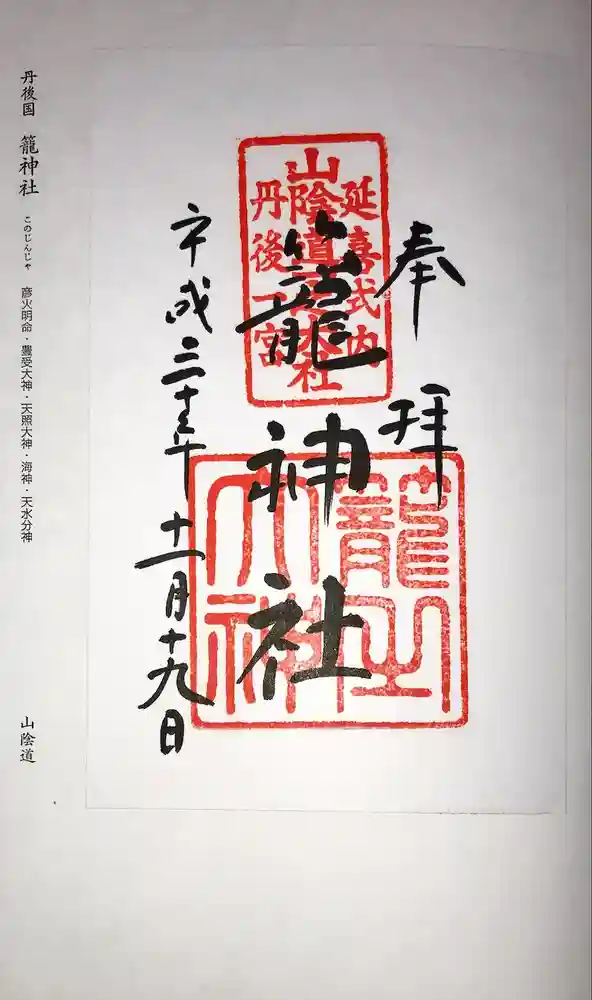 奉拝
延喜式内
山陰道一之大社
丹後一宮
籠神社
籠之
大神
平成三十年十一月十九日
丹後国 籠神社 このじんじゃ 彦火明命・豊受大神・天照大神・海神・天水分神 山陰道